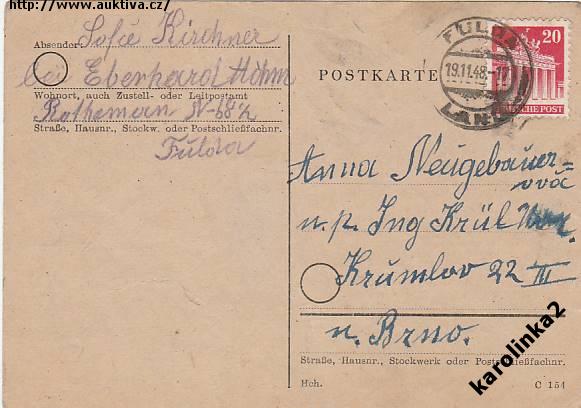 http://www.auktiva.cz/
Absender: Kirchner
bei Eberhard Höhn
Wohnort, auch Zustell- oder Leitpostamt
Straße, Hausnr., Stockw. oder Postschließfachnr.
Fulda
POSTKARTE
FULDA
19.11.48.-17
LAND
20
DEUTSCHE POST
Anna Neugebauer-
ová
n. p. Ing Král
Krumlov 22 III
u. Brno.
Straße, Hausnr., Stockwerk oder Postschließfachnr.
Hch.
C 154
karolinka2